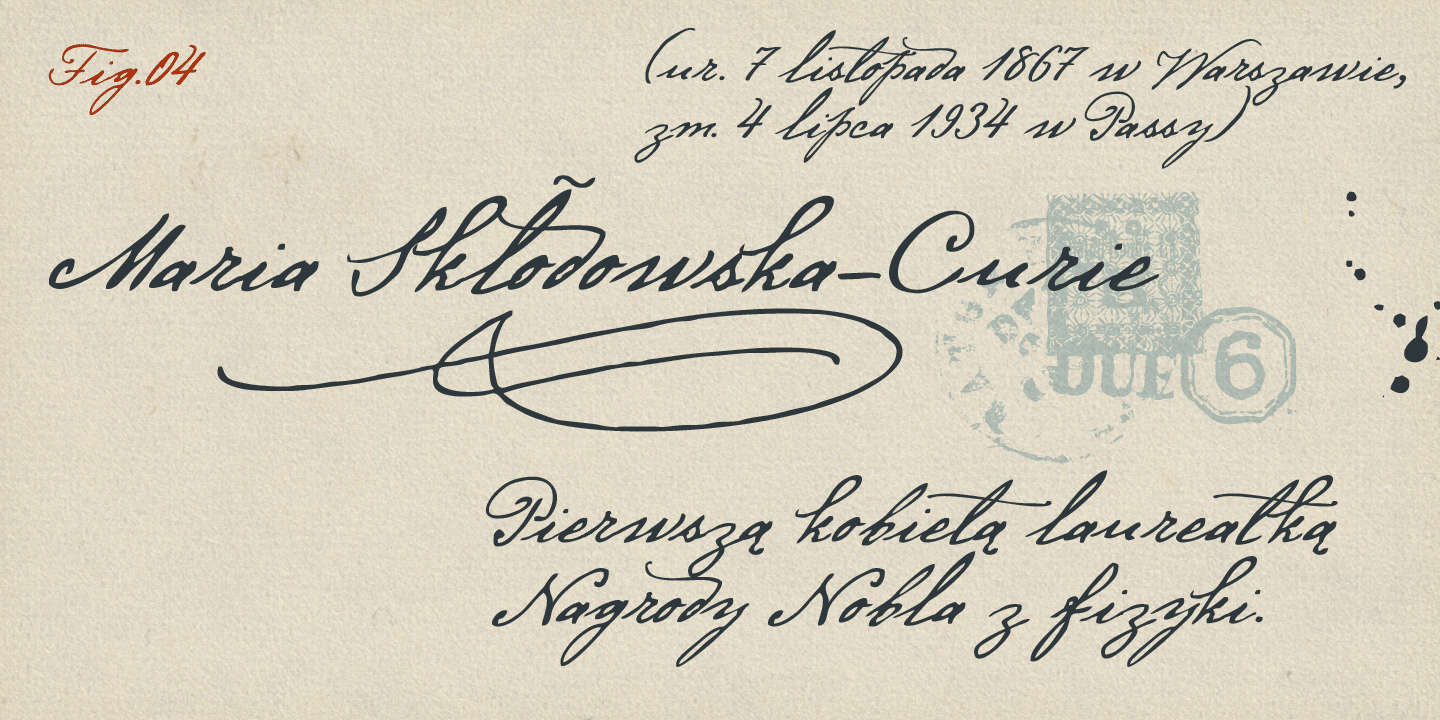 Fig.04
(ur. 7 listopada 1867 w Warszawie,
zm. 4 lipca 1934 w Passy)
Maria Skłodowska–Curie
DUE 6
Pierwszą kobietą laureatką
Nagrody Nobla z fizyki.